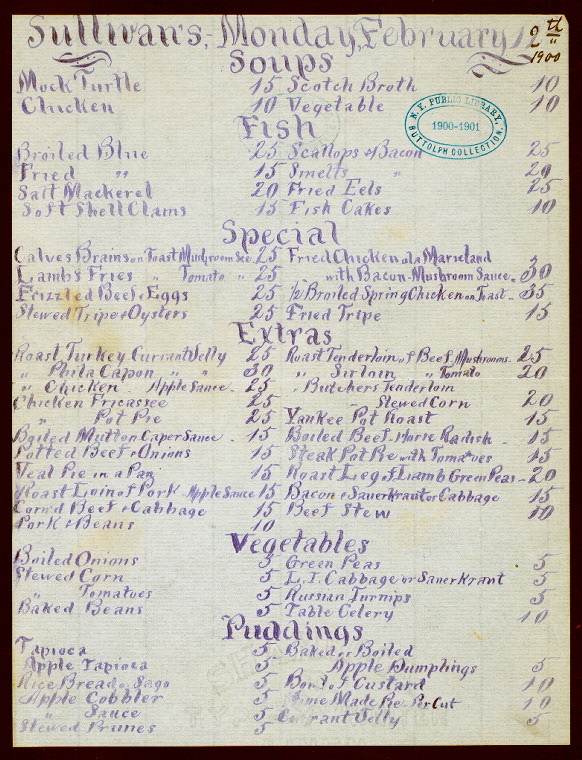 Sullivan's, - Monday, February 12th
1900
Soups
Mock Turtle 15 Scotch Broth 10
Chicken 10 Vegetable 10
N.Y. PUBLIC LIBRARY,
1900-1901
BUTTOLPH COLLECTION.
Fish
Broiled Blue 25 Scallops & Bacon 25
Fried " 15 Smelts " 20
Salt Mackerel 20 Fried Eels 25
Soft Shell Clams 15 Fish Cakes 10
Special
Calves Brains on Toast Mushroom Sce. 25 Fried Chicken a la Marieland
Lamb's Fries " Tomato " 25 with Bacon - Mushroom Sauce - 30
Frizzled Beef & Eggs 25 1/2 Broiled Spring Chicken on Toast - 35
Stewed Tripe & Oysters 25 Fried Tripe 15
Extras
Roast Turkey Currant Jelly 25 Roast Tenderloin of Beef, Mushrooms - 25
" Phila Capon " " 30 " Sirloin " " Tomato 20
" Chicken - Apple Sauce - 25 " Butchers Tenderloin
Chicken Fricassee 25 - Stewed Corn 20
" Pot Pie 25 Yankee Pot Roast 15
Boiled Mutton Caper Sauce - 15 Boiled Beef - Horse Radish - 15
Potted Beef & Onions 15 Steak Pot Pie with Tomatoes 15
Veal Pie in a Pan 15 Roast Leg of Lamb Green Peas - 20
Roast Loin of Pork - Apple Sauce 15 Bacon & Sauerkraut or Cabbage 15
Corn'd Beef & Cabbage 15 Beef Stew 10
Pork & Beans 10
Vegetables
Boiled Onions 5 Green Peas 5
Stewed Corn 5 L.I. Cabbage or Sauerkraut 5
" Tomatoes 5 Russian Turnips 5
Baked Beans 5 Table Celery 10
Puddings
Tapioca 5 Baked or Boiled
Apple Tapioca 5 Apple Dumplings 5
Rice Bread or Sago 5 Bowl of Custard 10
Apple Cobbler 5 Home Made Pie Per Cut 10
" Sauce 5 Currant Jelly 5
Stewed Prunes 5